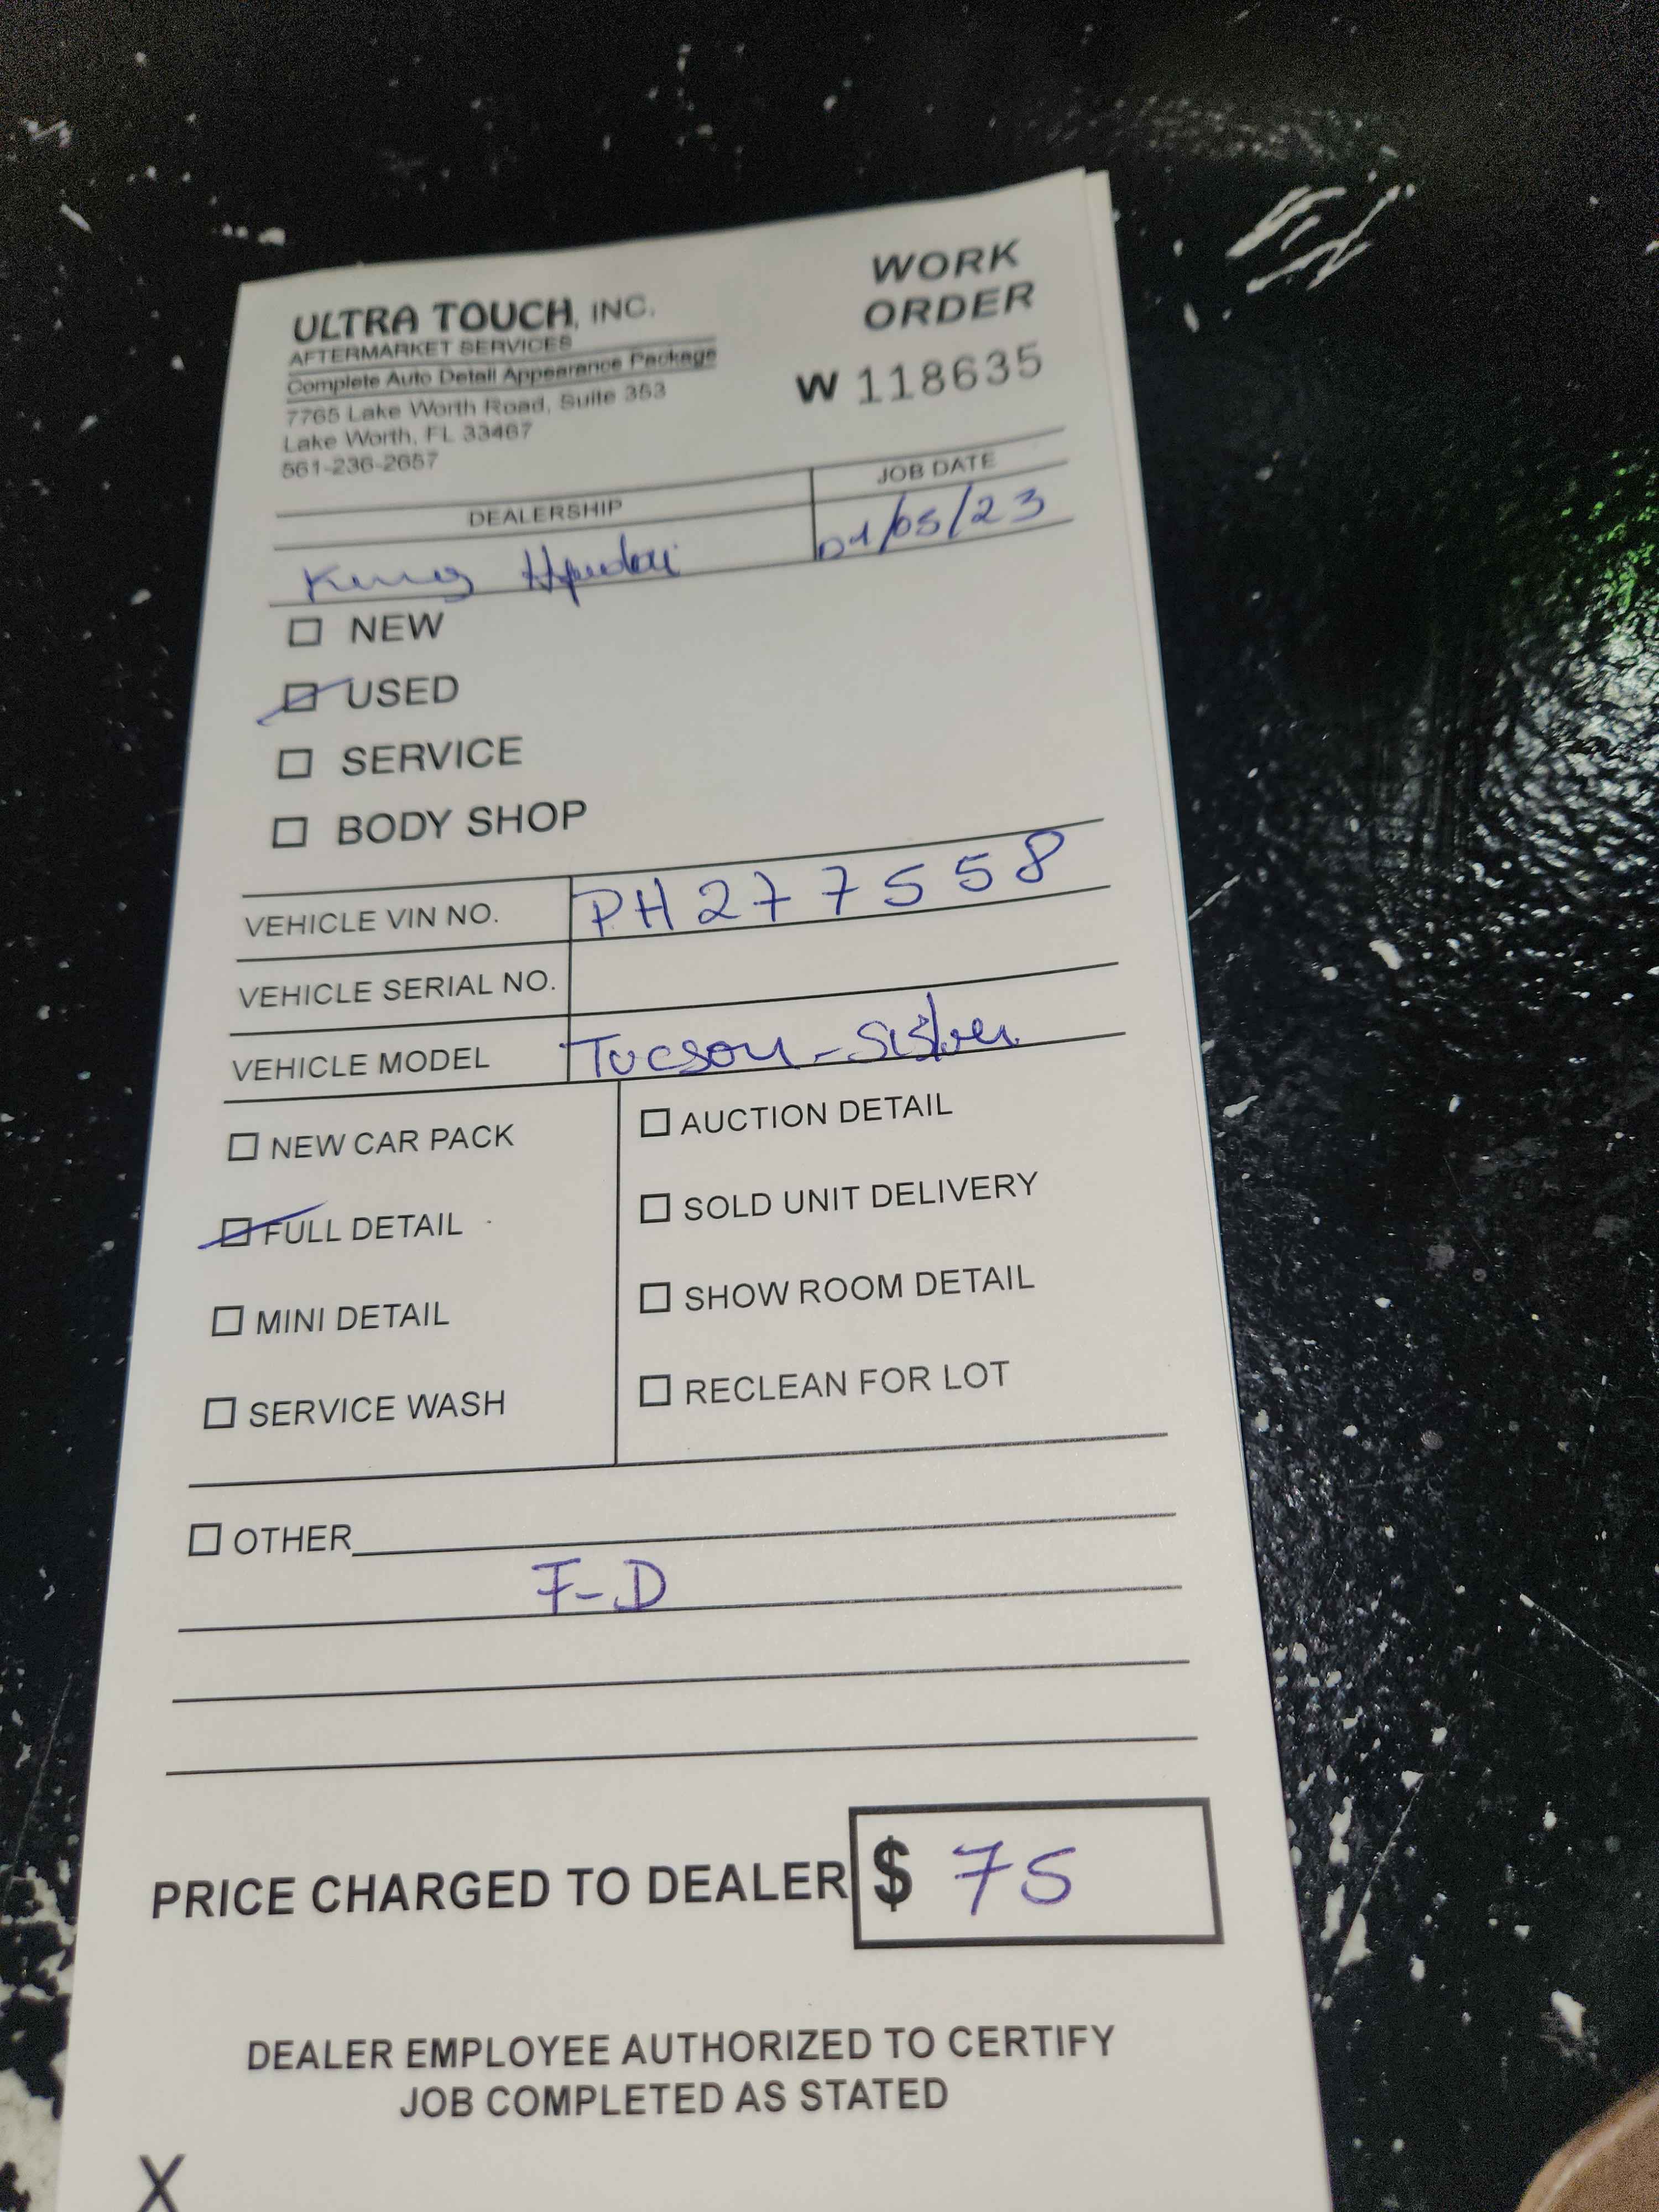 ULTRA TOUCH, INC.
AFTERMARKET SERVICES
Complete Auto Detail Appearance Package
7765 Lake Worth Road, Suite 353
Lake Worth, FL 33467
561-236-2657
WORK
ORDER
W 118635
DEALERSHIP
JOB DATE
01/05/23
NEW
USED
SERVICE
BODY SHOP
VEHICLE VIN NO. PH277558
VEHICLE SERIAL NO.
VEHICLE MODEL Tucson -
NEW CAR PACK
FULL DETAIL
MINI DETAIL
SERVICE WASH
AUCTION DETAIL
SOLD UNIT DELIVERY
SHOW ROOM DETAIL
RECLEAN FOR LOT
OTHER
F-D
PRICE CHARGED TO DEALER $ 75
DEALER EMPLOYEE AUTHORIZED TO CERTIFY
JOB COMPLETED AS STATED
X